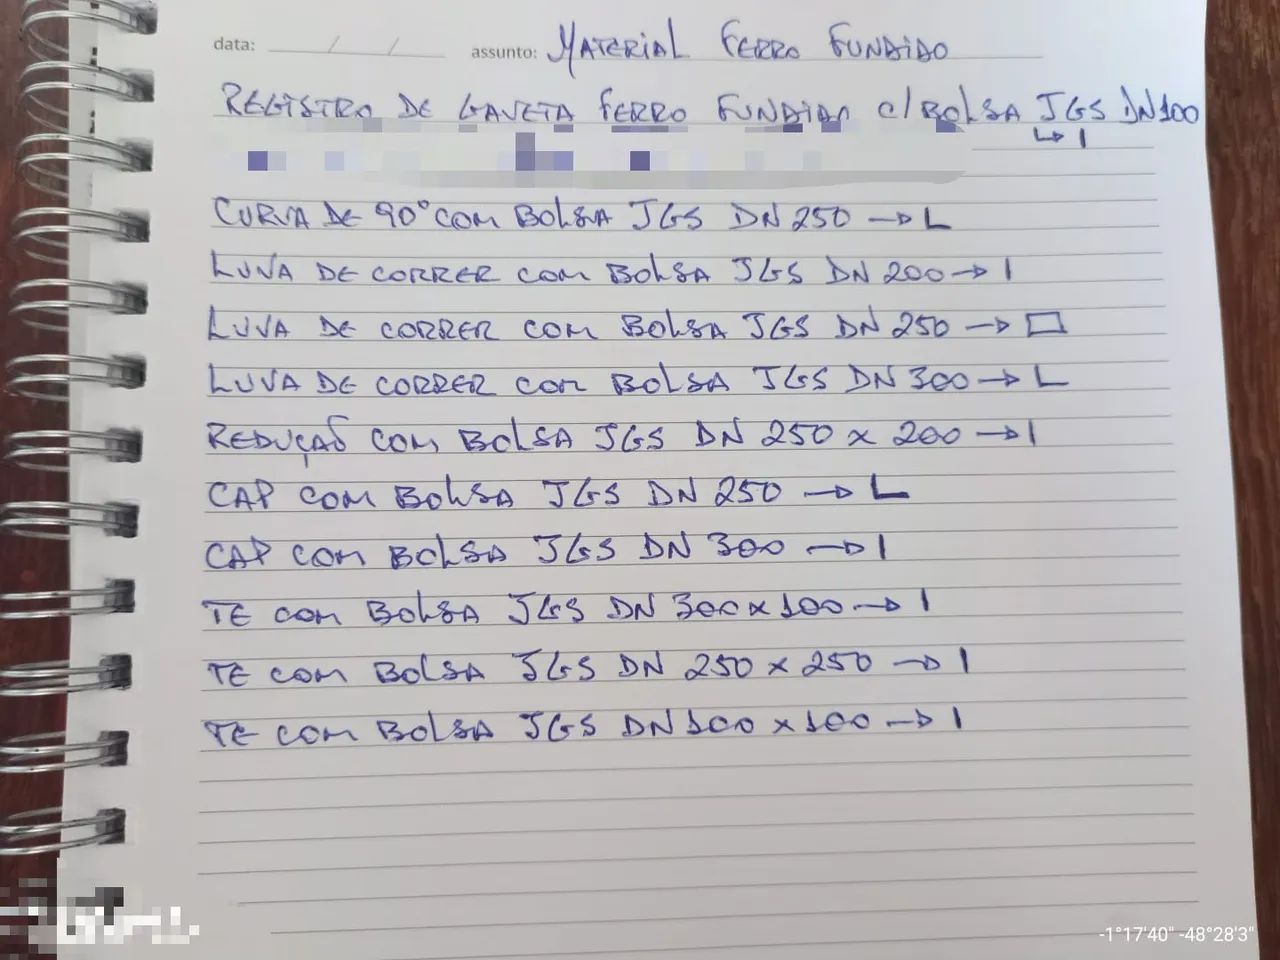 data: / / assunto: MATERIAL FERRO FUNDIDO
REGISTRO DE GAVETA FERRO FUNDIDO C/ BOLSA JGS DN100
↳ I
CURVA DE 90° COM BOLSA JGS DN 250 → L
LUVA DE CORRER COM BOLSA JGS DN 200 → I
LUVA DE CORRER COM BOLSA JGS DN 250 → □
LUVA DE CORRER COM BOLSA JGS DN 300 → L
REDUÇÃO COM BOLSA JGS DN 250 x 200 → I
CAP COM BOLSA JGS DN 250 → L
CAP COM BOLSA JGS DN 300 → I
TE COM BOLSA JGS DN 300 x 100 → I
TE COM BOLSA JGS DN 250 x 250 → I
TE COM BOLSA JGS DN 100 x 100 → I
-1°17'40" -48°28'3"